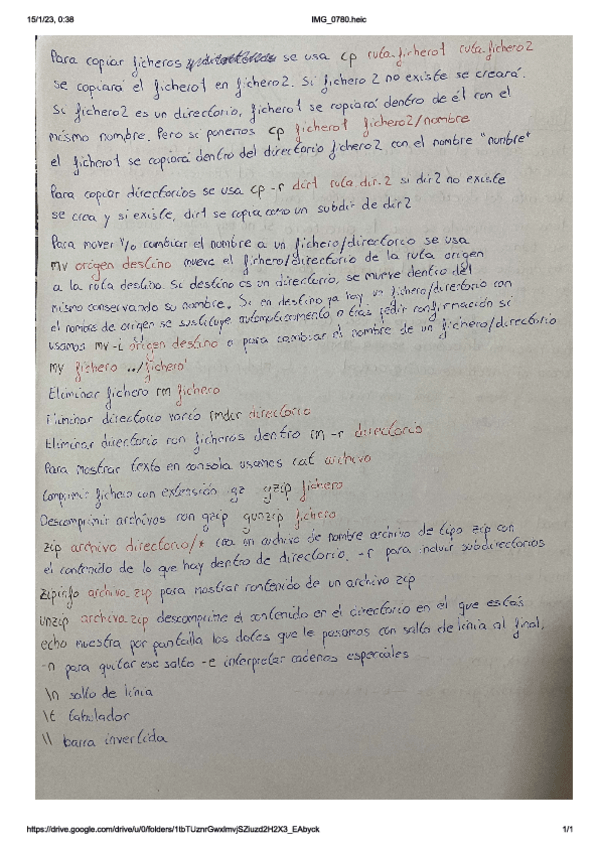 15/1/23, 0:38
IMG_0780.heic
Para copiar ficheros se usa cp ruta.fichero1 ruta.fichero2
se copiará el fichero1 en fichero2. Si fichero2 no existe se creará.
Si fichero2 es un directorio, fichero1 se copiará dentro de él con el
mismo nombre. Pero si ponemos cp fichero1 fichero2/nombre
el fichero1 se copiará dentro del directorio fichero2 con el nombre "nombre"
Para copiar directorios se usa cp -r dir1 ruta dir.2 si dir2 no existe
se crea y si existe, dir1 se copia como un subdir de dir2
Para mover y/o cambiar el nombre a un fichero/directorio se usa
mv origen destino mueve el fichero/directorio de la ruta origen
a la ruta destino. Si destino es un directorio, se mueve dentro del
mismo conservando su nombre. Si en destino ya hay un fichero/directorio con
el nombre de origen se sustituye automaticamente o tras pedir confirmación si
usamos mv -i origen destino o para cambiar el nombre de un fichero/directorio
mv fichero ../fichero'
Eliminar fichero rm fichero
Eliminar directorio vacio rmdir directorio
Eliminar directorio con ficheros dentro rm -r directorio
Para mostrar texto en consola usamos cat archivo
Comprimir fichero con extensión gz gzip fichero
Descomprimir archivos con gzip gunzip fichero
zip archivo directorio/* crea en archivo de nombre archivo de tipo zip con
el contenido de lo que hay dentro de directorio. -r para incluir subdirectorios
zipinfo archivo.zip para mostrar contenido de un archivo zip
unzip archivo.zip descomprime el contenido en el directorio en el que estás
echo muestra por pantalla los datos que le pasamos con salto de linia al final,
-n para quitar ese salto -e interpretar cadenas especiales
\n salto de linia
\t tabulador
\\ barra invertida
https://drive.google.com/drive/u/0/folders/1tbTUznrGwxlmvjSZiuzd2H2X3_EAbyck
1/1